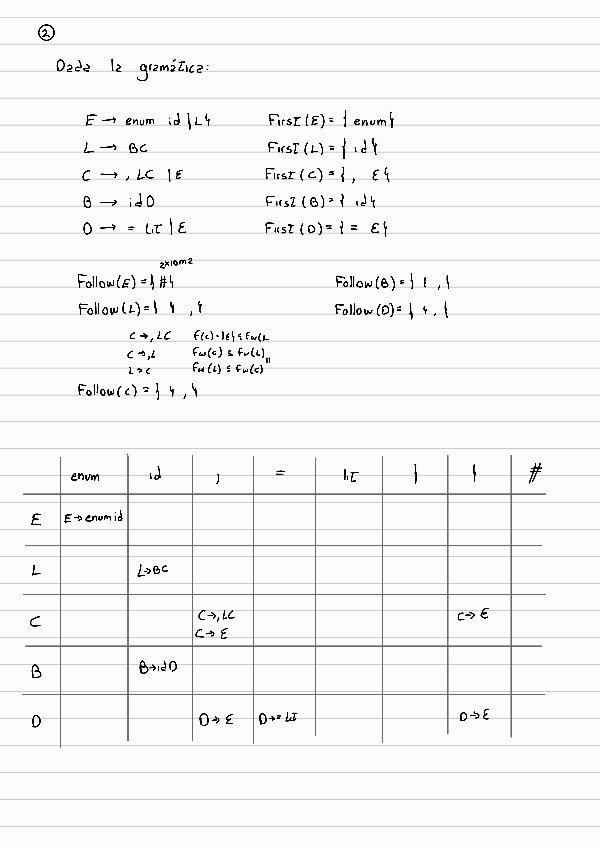 2
Dada la gramática:
E → enum id { L } First(E) = { enum }
L → BC First(L) = { id }
C → , LC | ε First(C) = { , ε }
B → id D First(B) = { id }
D → = LIT | ε First(D) = { = ε }
Follow(E) = { # } Follow(B) = { } , }
Follow(L) = { } , } Follow(D) = { } , }
C → , LC F(C) - {ε} ⊆ Fw(L
C → , L Fw(C) ⊆ Fw(L)
L → C Fw(L) ⊆ Fw(C)
Follow(C) = { } , }
enum id , = LIT { } #
E E → enum id
L L → BC
C C → , LC C → ε
C → ε
B B → id D
D D → ε D → = LIT D → ε